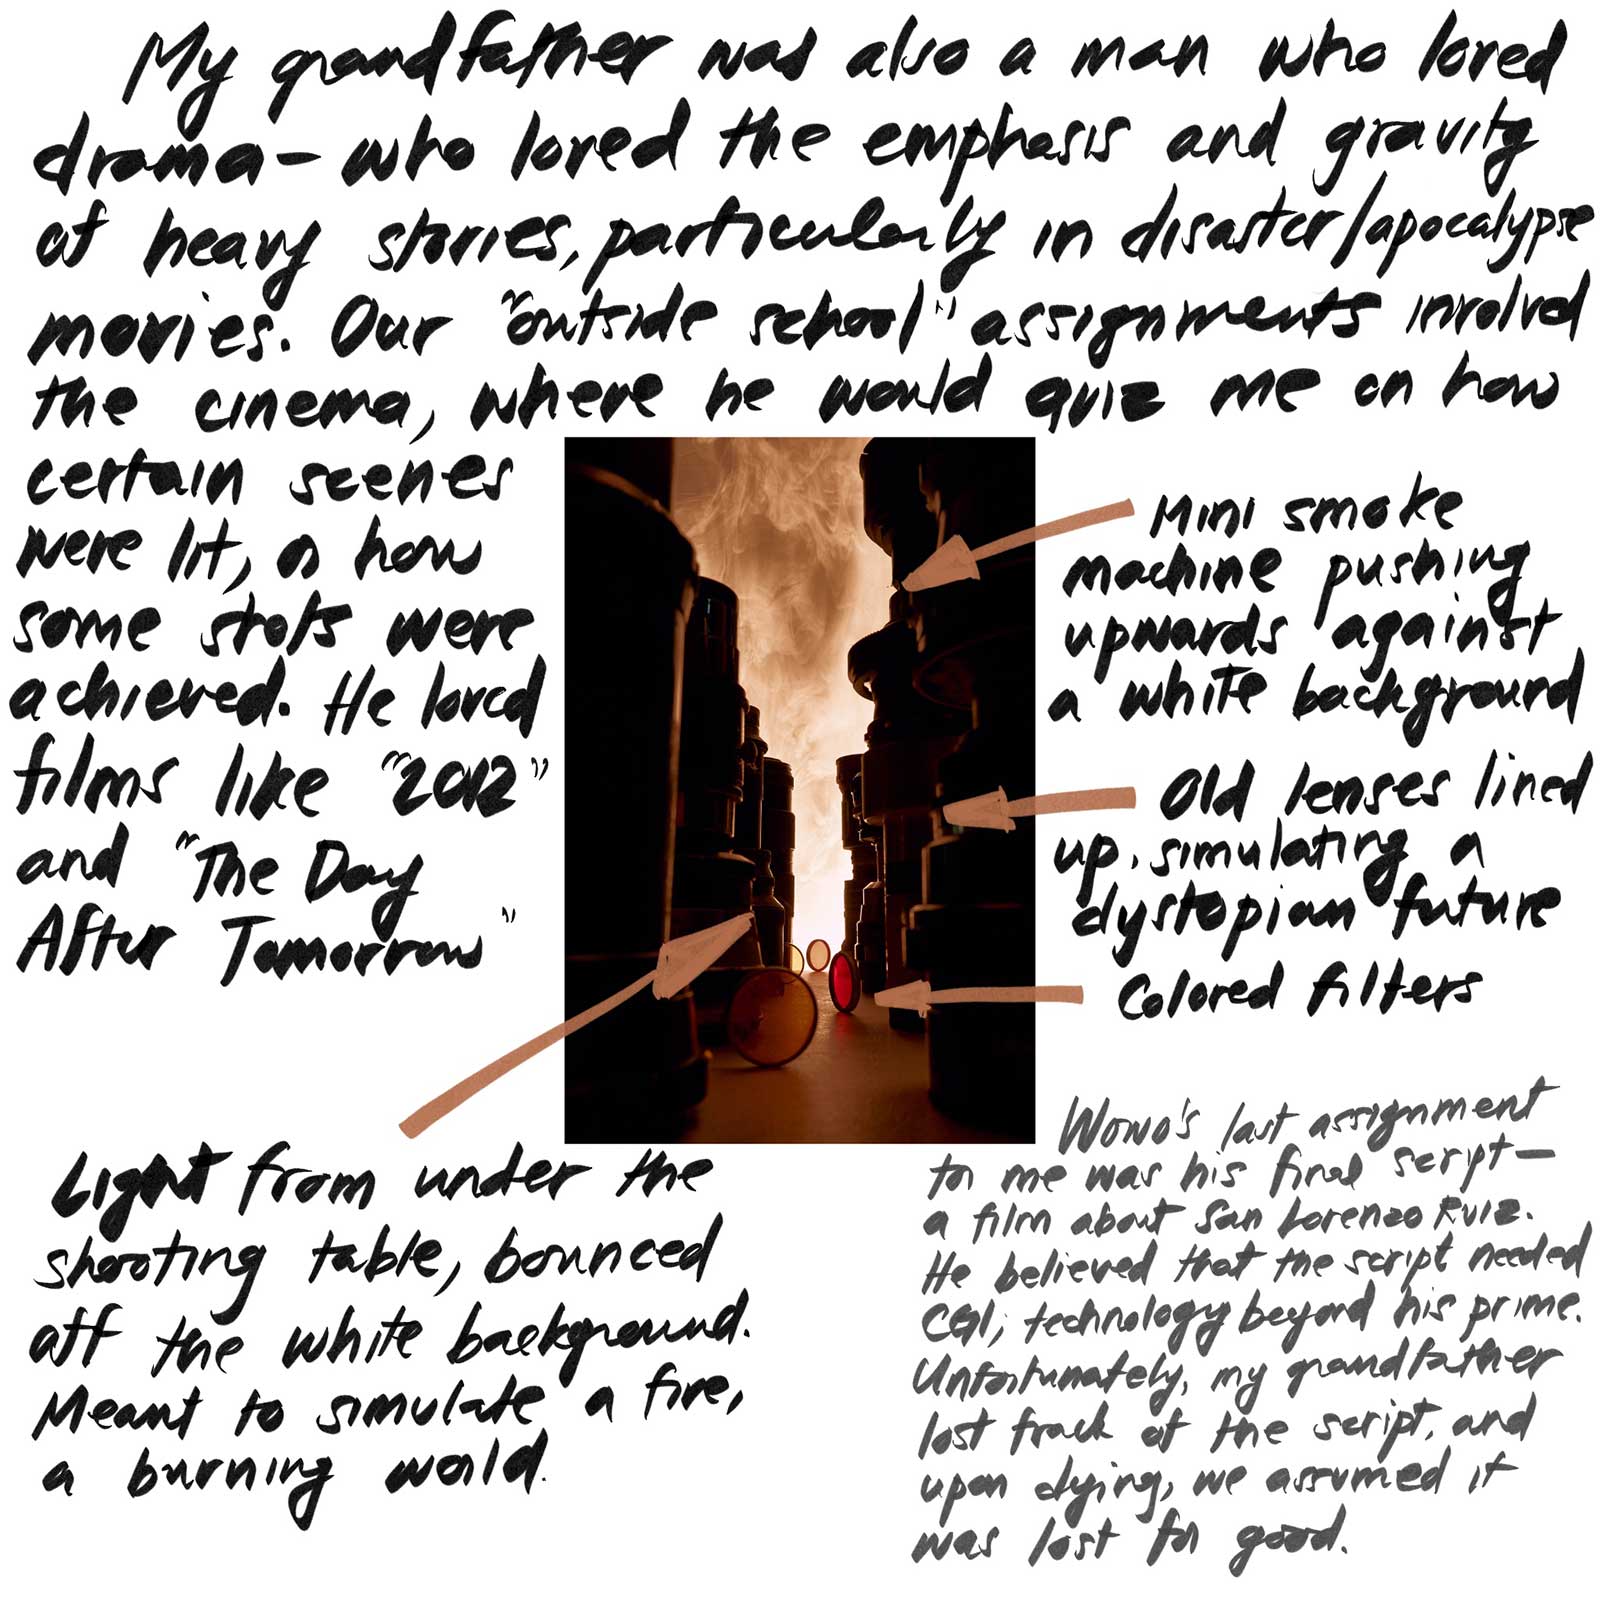 My grandfather was also a man who loved
drama – who loved the emphasis and gravity
of heavy stories, particularly in disaster/apocalypse
movies. Our "outside school" assignments involved
the cinema, where he would quiz me on how
certain scenes
were lit, or how
some shots were
achieved. He loved
films like "2012"
and "The Day
After Tomorrow"
Mini smoke
machine pushing
upwards against
a white background
Old lenses lined
up, simulating a
dystopian future
Colored filters
Light from under the
shooting table, bounced
off the white background.
Meant to simulate a fire,
a burning world.
Wowo's last assignment
to me was his final script –
a film about San Lorenzo Ruiz.
He believed that the script needed
CGI; technology beyond his prime.
Unfortunately, my grandfather
lost track of the script, and
upon dying, we assumed it
was lost for good.